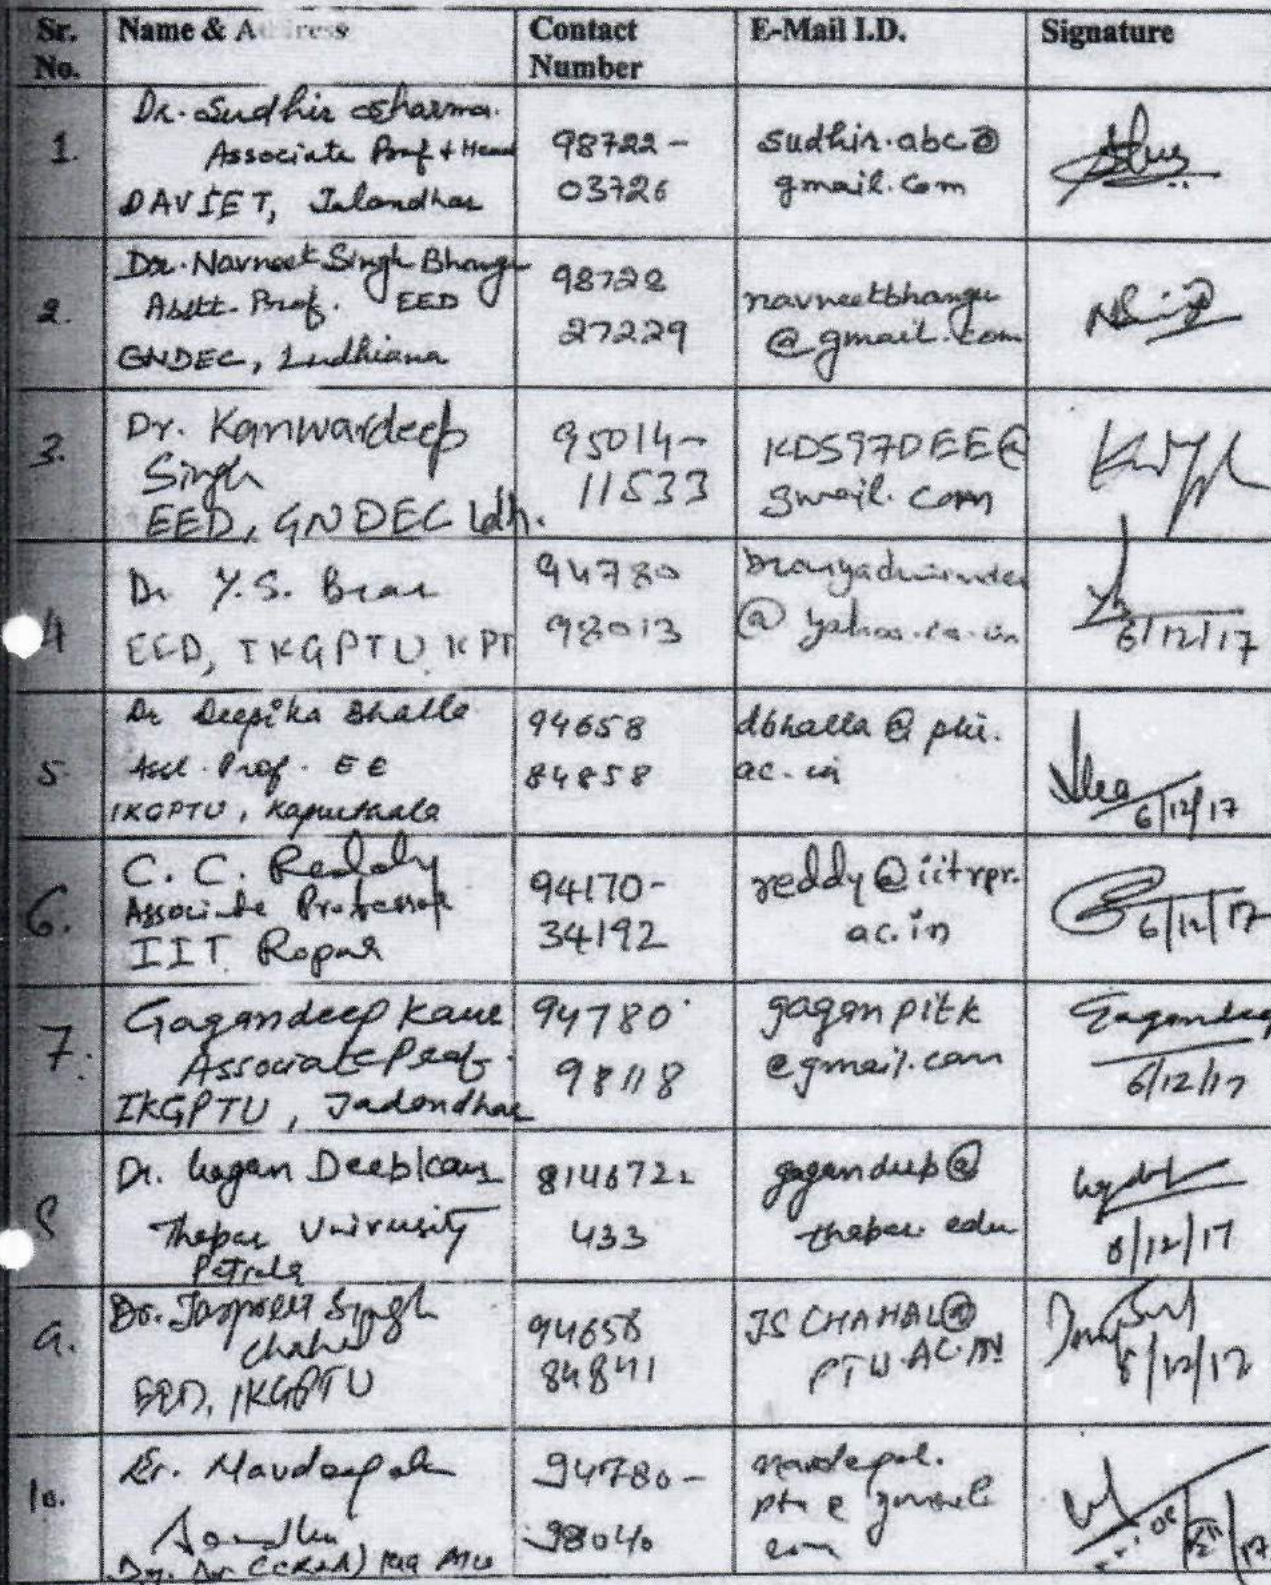 Sr. No. Name & Address Contact Number E-Mail I.D. Signature
1. Dr. Sudhir Sharma.
Associate Prof + Head
DAVIET, Jalandhar
98722-
03726
sudhir.abc@
gmail.com
2. Dr. Navneet Singh Bhangu
Asstt. Prof. EED
GNDEC, Ludhiana
98728
27229
navneetbhangu
@gmail.com
3. Dr. Kanwardeep
Singh
EED, GNDEC Ldh.
95014-
11533
KDS97DEE@
gmail.com
4 Dr Y.S. Brar
EED, IKGPTU, KPT
94780
98013
@ yahoo.co.in
6/12/17
5 Dr Deepika Bhalla
Asst. Prof. EE
IKGPTU, Kapurthala
94658
84858
dbhalla@ptu.
ac.in
6/12/17
6. C. C. Reddy
Associate Professor
IIT Ropar
94170-
34192
reddy@iitrpr.
ac.in
6/12/17
7. Gagandeep Kaur
Associate Prof.
IKGPTU, Jalandhar
94780
98118
gaganpitk
@gmail.com
Gagandeep
6/12/17
8 Dr. Gagan Deep Kaur
Thapar University
Patiala
8146722
433
gagandeep@
thapar.edu
8/12/17
9. Dr. Jaspreet Singh
Chahal
EED, IKGPTU
94658
84841
JSCHAHAL@
PTU.AC.IN
8/12/17
10. Er. Navdeepak
Sandhu
94780-
98040
navdeepak.
ptu@gmail.
com